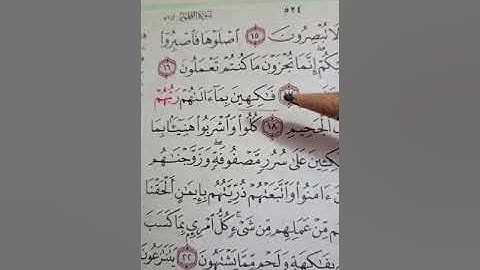 سُورَةُ الطُّورِ ٥٢٤
لَا تُبْصِرُونَ ١٥ ٱصْلَوْهَا فَٱصْبِرُوٓا۟
كُمْ ۖ إِنَّمَا تُجْزَوْنَ مَا كُنتُمْ تَعْمَلُونَ ١٦
فَٰكِهِينَ بِمَآ ءَاتَىٰهُمْ رَبُّهُمْ
ٱلْجَحِيمِ ١٨ كُلُوا۟ وَٱشْرَبُوا۟ هَنِيٓـًٔۢا بِمَا
كِـِٔينَ عَلَىٰ سُرُرٍ مَّصْفُوفَةٍ ۖ وَزَوَّجْنَٰهُم
ءَامَنُوا۟ وَٱتَّبَعَتْهُمْ ذُرِّيَّتُهُم بِإِيمَٰنٍ أَلْحَقْنَا
هُم مِّنْ عَمَلِهِم مِّن شَىْءٍ ۚ كُلُّ ٱمْرِئٍۭ بِمَا كَسَبَ
بِفَٰكِهَةٍ وَلَحْمٍ مِّمَّا يَشْتَهُونَ ٢٢